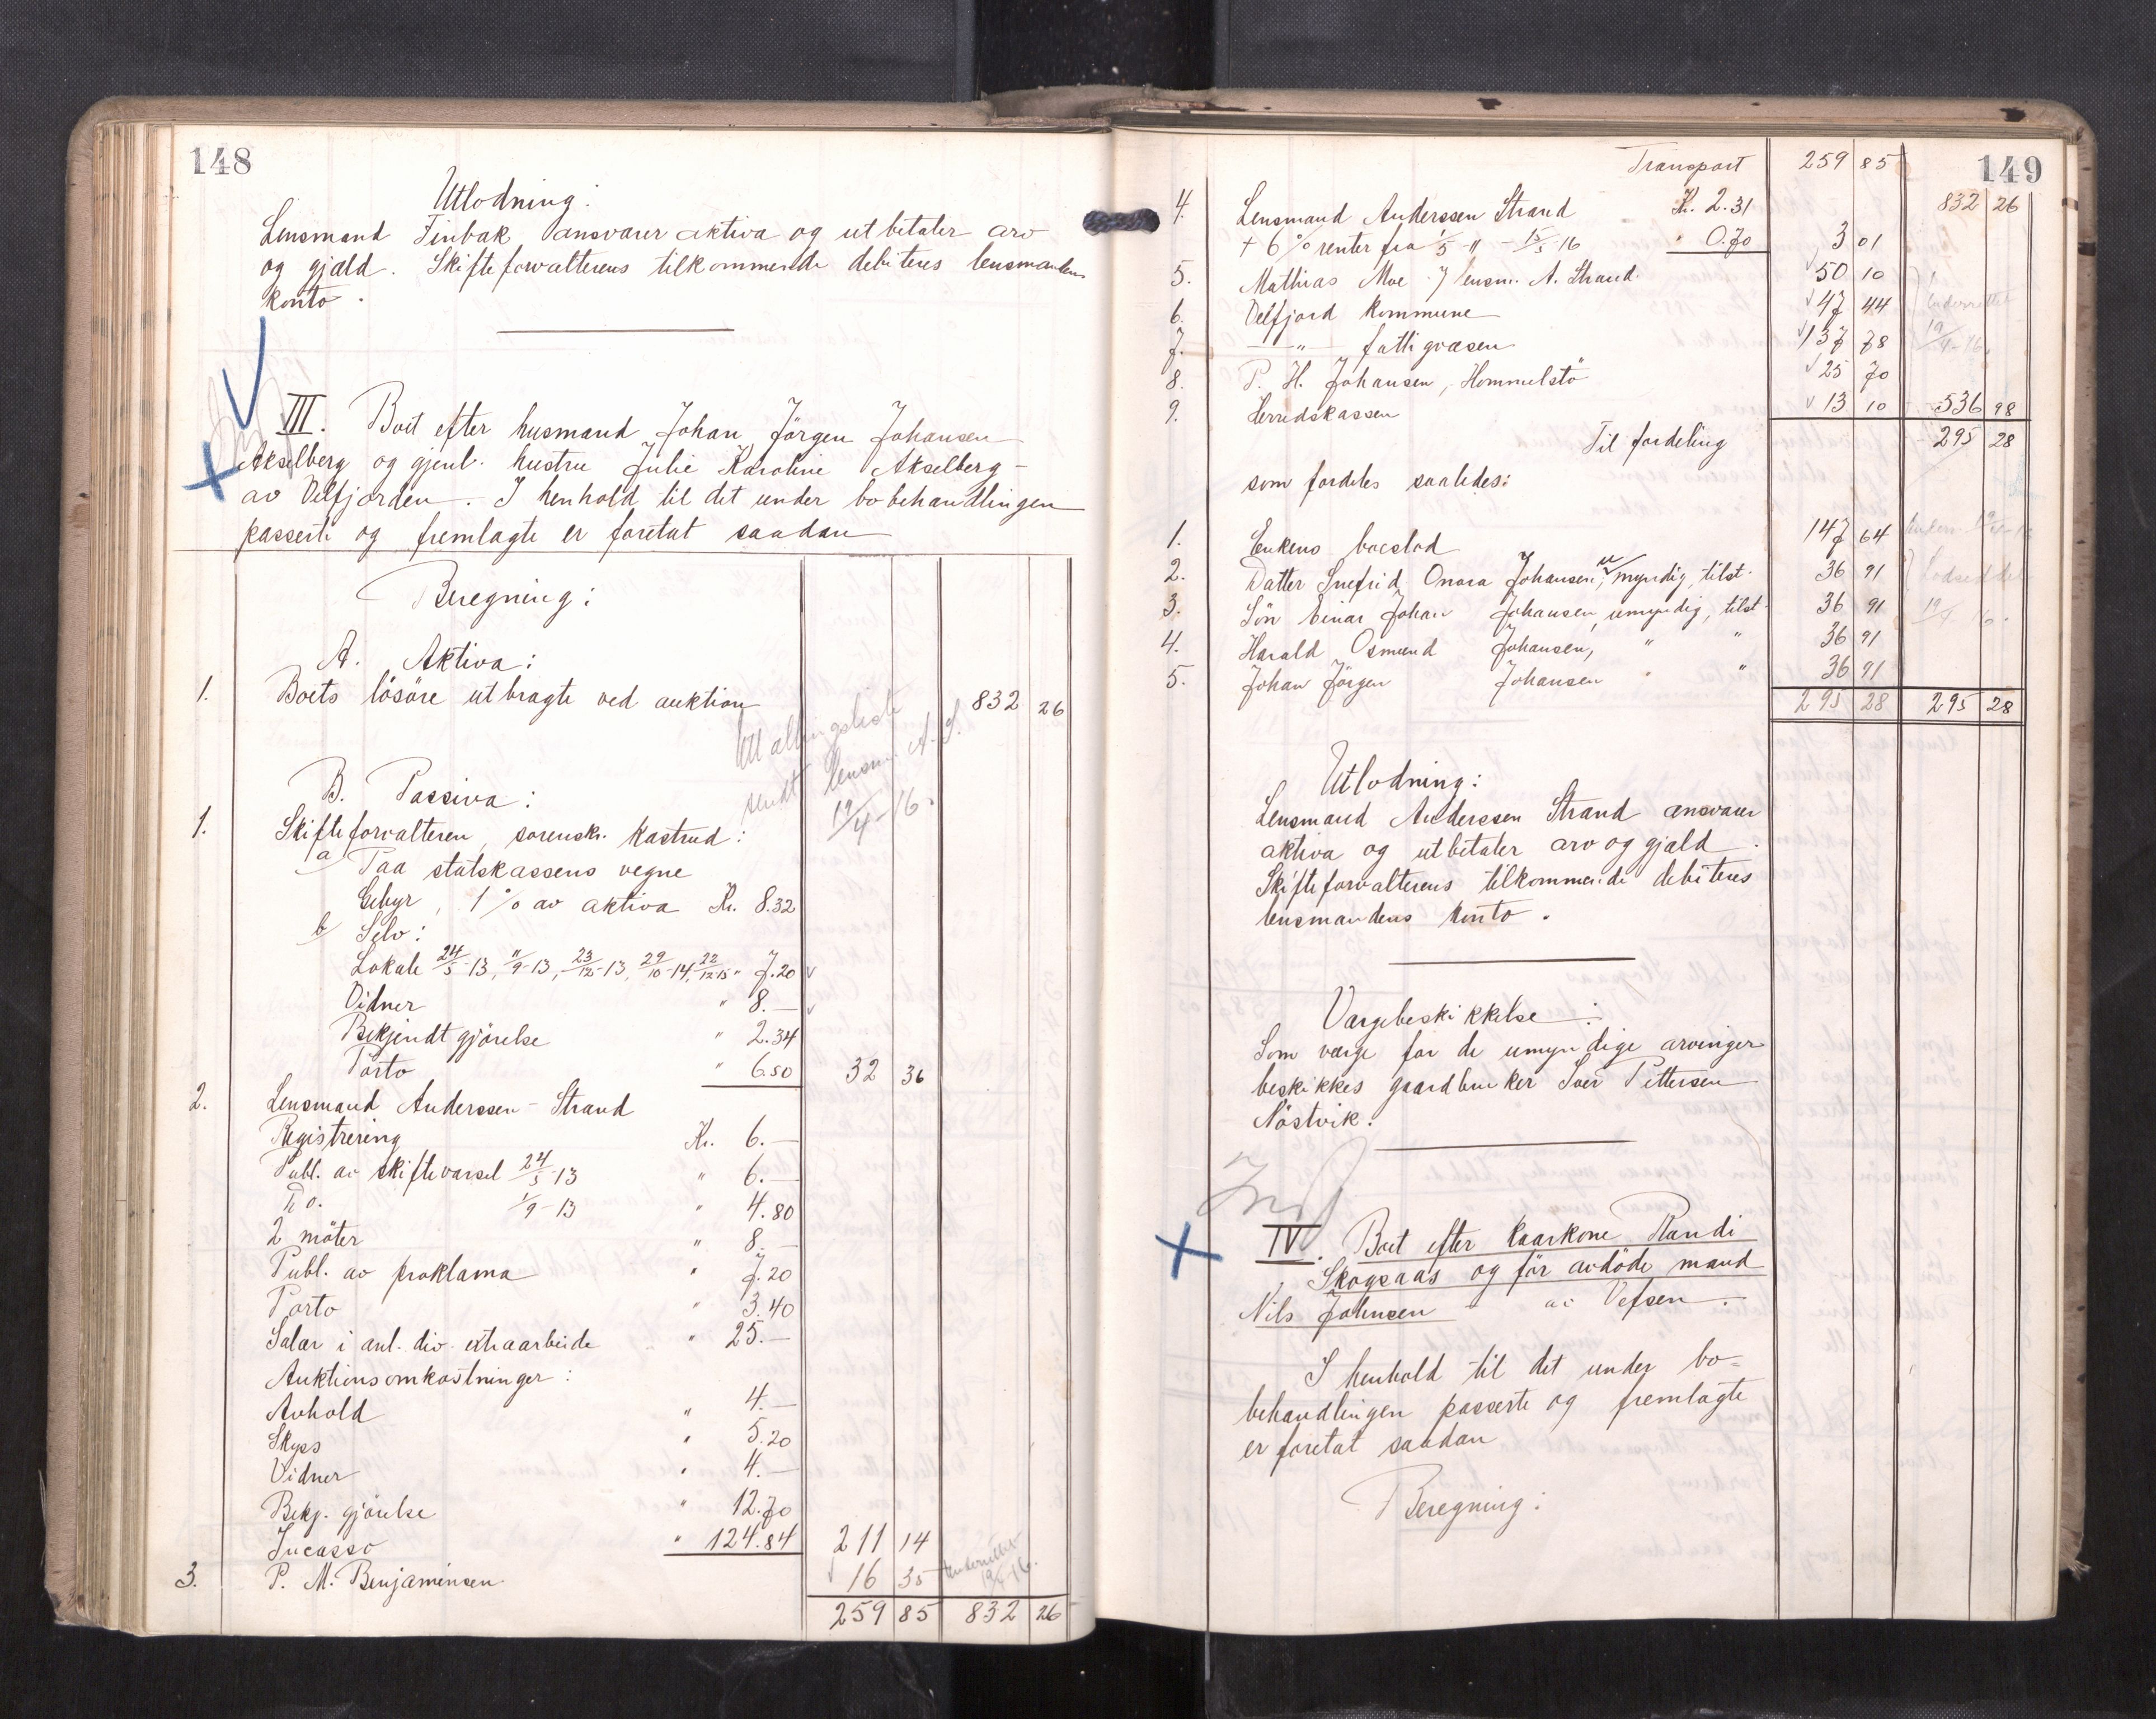 148
Utlodning:
Lensmand Finbak ansvarer aktiva og utbetaler arv
og gjæld. Skifteforvalterens tilkommende debiteres lensmandens
konto.
III. Boet efter husmand Johan Jörgen Johansen
Akselberg og gjenl. hustru Julie Karoline Akselberg
av Velfjorden. I henhold til det under bobehandlingen
passerte og fremlagte er foretat saadan
Beregning:
A. Aktiva:
1. Boets lösöre utbragte ved auktion 832 26
Utallingsliste
sendt lensm. A. S.
19/4-16.
B. Passiva:
1. Skifteforvalteren, sorenskr. Kastrud:
a/ Paa statskassens vegne
Gebyr, 1% av aktiva Kr. 8.32
b/ Selv:
Lokale 24/5-13, 11/9-13, 23/12-13, 29/10-14, 22/12-15 " 7.20
Vidner " 8.—
Bekjendtgjörelse " 2.34
Porto " 6.50 32 36
2. Lensmand Anderssen-Strand
Registrering Kr. 6.—
Publ. av skiftevarsel 24/5-13 " 6.—
Do. 1/9-13 " 4.80
2 möter " 8.—
Publ. av proklama " 7.20
Porto " 3.40
Salær i anl. div. extraarbeide " 25.—
Auktionsomkostninger:
Avhold " 4.—
Skyss " 5.20
Vidner " 4.—
Bekj. gjörelse " 12.70
Incasso " 124.84 211 14
3. P. M. Benjaminsen 16 35 Underrettet 19/4-16.
259 85 832 26
149
Transport 259 85
832 26
4. Lensmand Anderssen Strand Kr. 2.31
+ 6% renter fra 1/5-11 - 15/5 16 " 0.70 3 01
5. Mathias Moe v/ lensm. A. Strand 50 10
6. Velfjord kommune 47 44 Underrettet
7. —"— fattigvæsen 137 78 19/4-16.
8. P. H. Johansen, Hommelstö 25 70
9. Herredskassen 13 10 536 98
Til fordeling 295 28
som fordeles saaledes:
1. Enkens boeslod 147 64
2. Datter Snefrid Onara Johansen, umyndig, tilst. 36 91 Lodseddel
3. Sön Einar Johan Johansen, umyndig, tilst. 36 91 19/4 16.
4. Harald Osmund Johansen, " " 36 91
5. Johan Jörgen Johansen " " 36 91
295 28 295 28
Utlodning:
Lensmand Anderssen Strand ansvarer
aktiva og utbetaler arv og gjæld.
Skifteforvalterens tilkommende debiteres
lensmandens konto.
Værgebeskikkelse:
Som værge for de umyndige arvinger
beskikkes gaardbruker Sver Pettersen
Nöstvik.
IV. Boet efter kaarkone Randi
Skogsaas og för avdöde mand
Nils Johnsen av Vefsen.
I henhold til det under bo-
behandlingen passerte og fremlagte
er foretat saadan
Beregning: